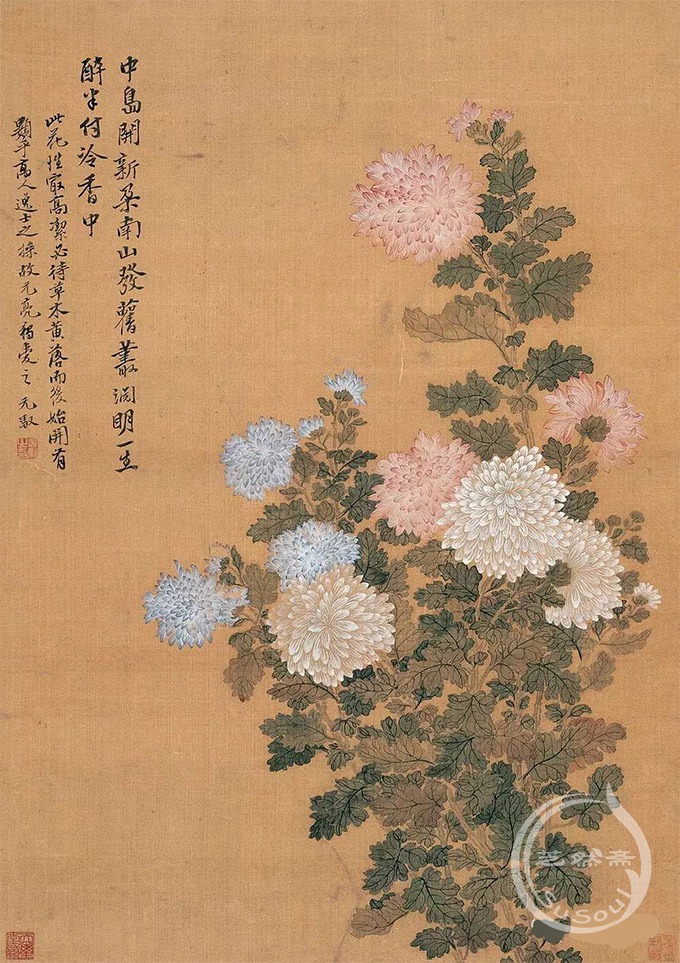 中島開新朶南山發舊叢淵明一生
醉半付冷香中
此花性最高潔必待草木黃落而後始開有
類乎高人逸士之操故元亮獨愛之 元馭
然斋
SuSoul